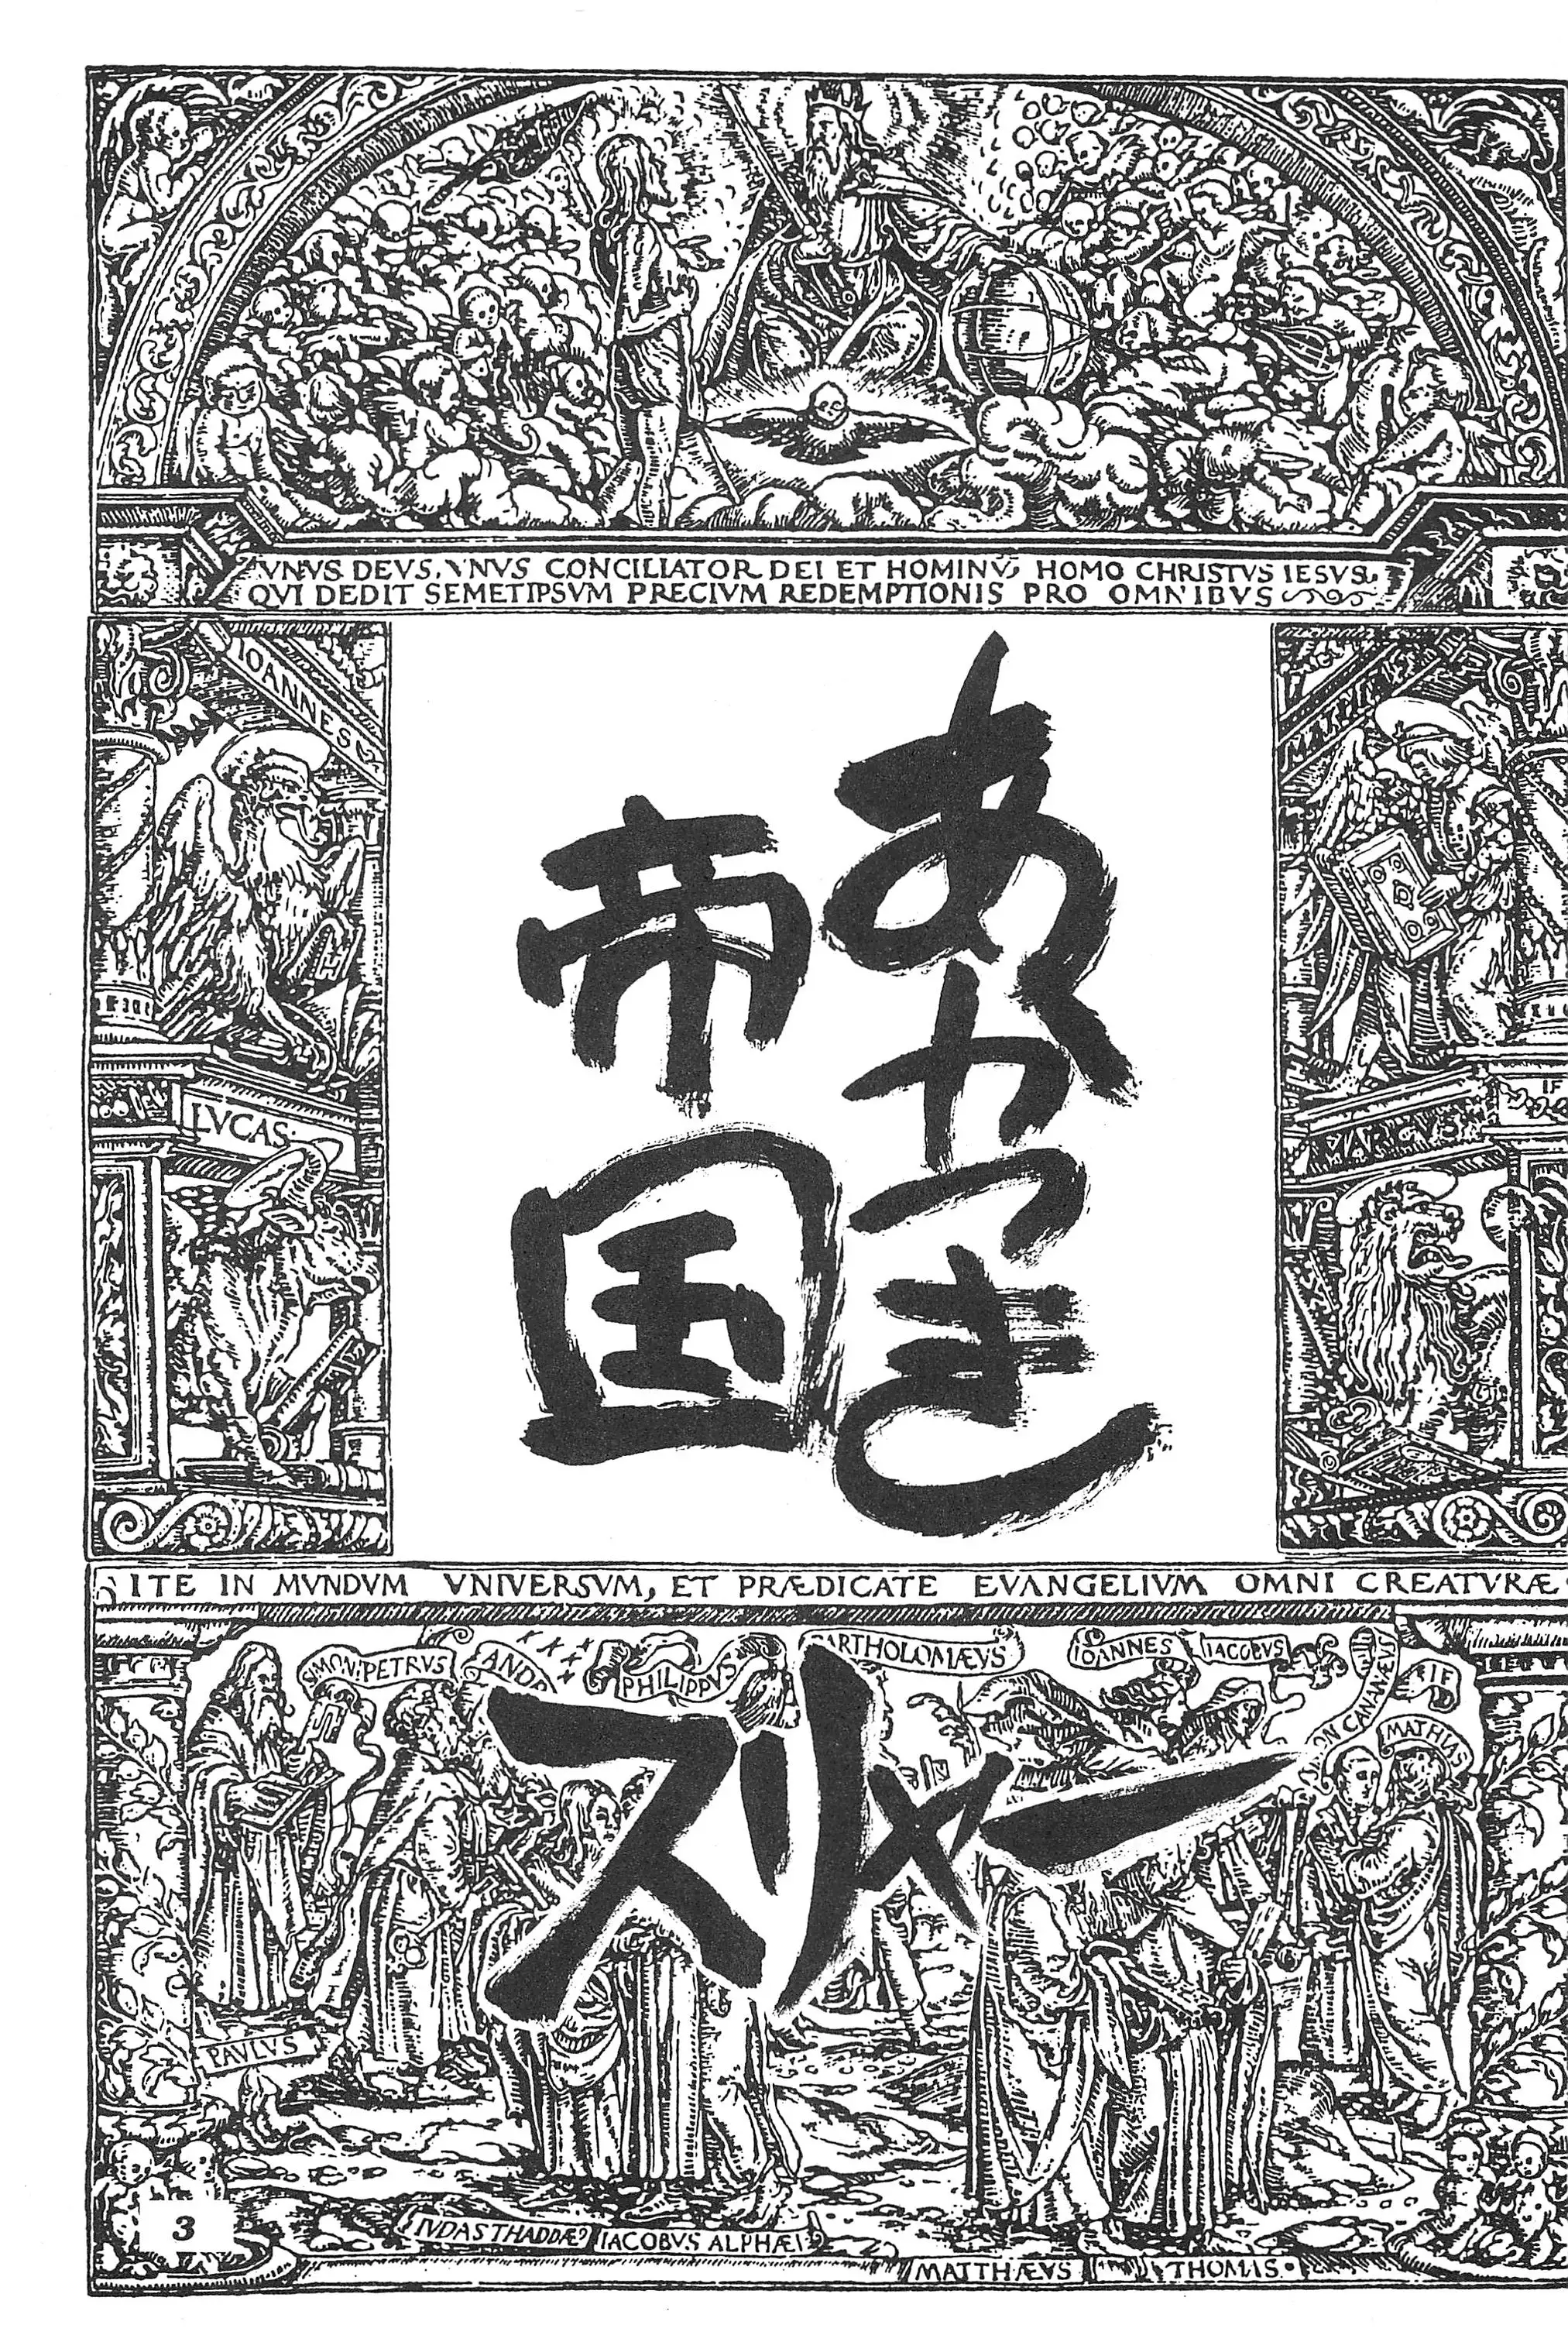 VNVS DEVS, VNVS CONCILIATOR DEI ET HOMINV̄, HOMO CHRISTVS IESVS
QVI DEDIT SEMETIPSVM PRECIVM REDEMPTIONIS PRO OMNIBVS
IOANNES
LVCAS
あかつき
帝国
MARCVS
ITE IN MVNDVM VNIVERSVM, ET PRÆDICATE EVANGELIVM OMNI CREATVRÆ
SIMON PETRVS
ANDR
PHILIPPVS
BARTHOLOMÆVS
IOANNES
IACOBVS
ON CANANÆVS
MATHIAS
スリメー
PAVLVS
3
IVDAS THADDÆ
IACOBVS ALPHÆI
MATTHÆVS
THOMAS